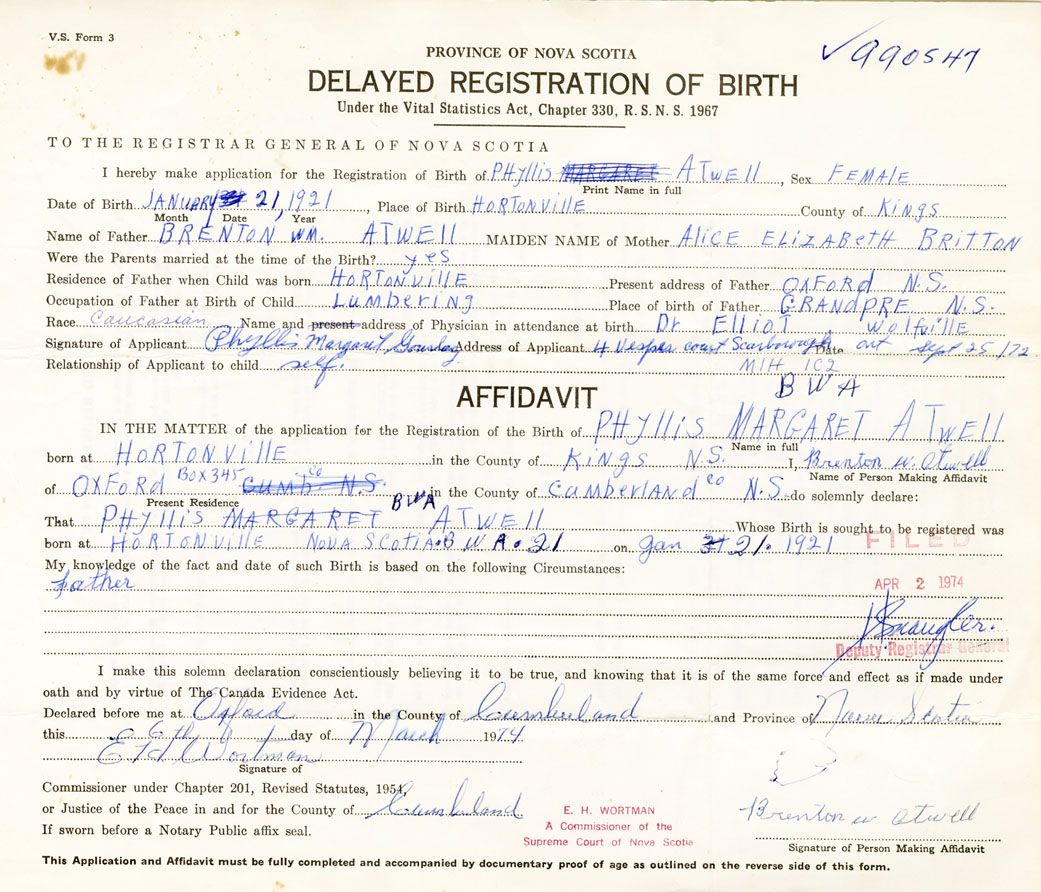 V.S. Form 3
✓990547
PROVINCE OF NOVA SCOTIA
DELAYED REGISTRATION OF BIRTH
Under the Vital Statistics Act, Chapter 330, R. S. N. S. 1967
TO THE REGISTRAR GENERAL OF NOVA SCOTIA
I hereby make application for the Registration of Birth of PHyllis MARGARET ATwell, Sex FEMALE
Print Name in full
Date of Birth JANUARY 21, 1921, Place of Birth HORTONVIllE County of Kings
Month Date Year
Name of Father BRENTON WM. ATWEll MAIDEN NAME of Mother AliCE ElizABetH BRITTON
Were the Parents married at the time of the Birth? yes
Residence of Father when Child was born HORTONVillE Present address of Father OXFORD N.S.
Occupation of Father at Birth of Child Lumbering Place of birth of Father GRANDPRE N.S.
Race Caucasian Name and present address of Physician in attendance at birth Dr Elliot Wolfville
Signature of Applicant Phyllis Margaret Address of Applicant 4 Vesper court Scarborough Date ont Sept 25/72
Relationship of Applicant to child self. M1H 1C2
B W A
AFFIDAVIT
IN THE MATTER of the application for the Registration of the Birth of PHYllis MARGARET ATwell
Name in full
born at HORTONVillE in the County of Kings N.S. I, Brenton W. Atwell
Name of Person Making Affidavit
of OXFORD BOX 345 Cumb. Co N.S. in the County of CUMBERLAND Co N.S. do solemnly declare:
Present Residence BWA
That PHYllis MARGARET ATWEll Whose Birth is sought to be registered was
born at HORTONVillE NOVA SCOTIA. B W A. 21 on Jan 21. 1921
FILED
My knowledge of the fact and date of such Birth is based on the following Circumstances:
father
APR 2 1974
Deputy Registrar General
I make this solemn declaration conscientiously believing it to be true, and knowing that it is of the same force and effect as if made under
oath and by virtue of The Canada Evidence Act.
Declared before me at Oxford in the County of Cumberland and Province of Nova Scotia
this 6th day of March 1974
E H Wortman
Signature of
Commissioner under Chapter 201, Revised Statutes, 1954,
or Justice of the Peace in and for the County of Cumberland
If sworn before a Notary Public affix seal.
E. H. WORTMAN
A Commissioner of the
Supreme Court of Nova Scotia
Brenton W Atwell
Signature of Person Making Affidavit
This Application and Affidavit must be fully completed and accompanied by documentary proof of age as outlined on the reverse side of this form.